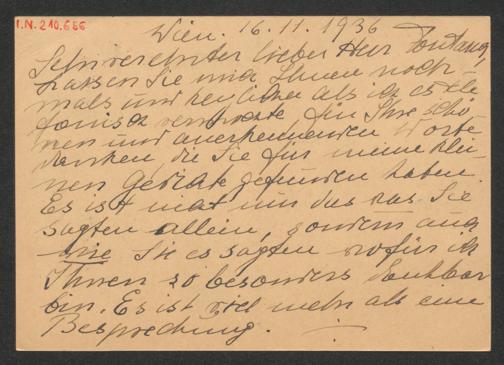 I.N. 240.656
Wien. 16.11.1936
Sehr verehrter lieber Herr Fontana,
lassen Sie mich Ihnen noch-
mals und herzlicher als ich es tele
fonisch vermochte, für Ihre schö
nen und anerkennenden Worte
danken die Sie für meine klei-
nen Gedichte gefunden haben.
Es ist nicht nur das was Sie
sagten allein, sondern auch
wie Sie es sagten wofür ich
Ihnen so besonders dankbar
bin. Es ist viel mehr als eine
Besprechung.